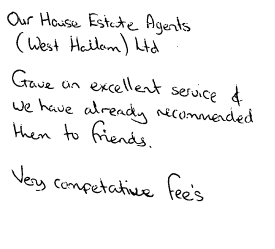 Our House Estate Agents
(West Hallam) Ltd
Gave an excellent service &
we have already recommended
them to friends.
Very competative fee's